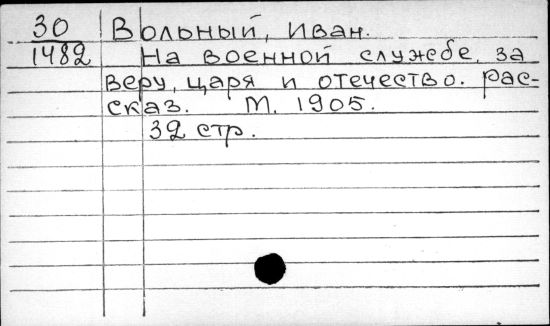 30 Вольный, Иван.
1482 На военной службе, за
веру, царя и отечество. Рас-
сказ. М. 1905.
32 стр.